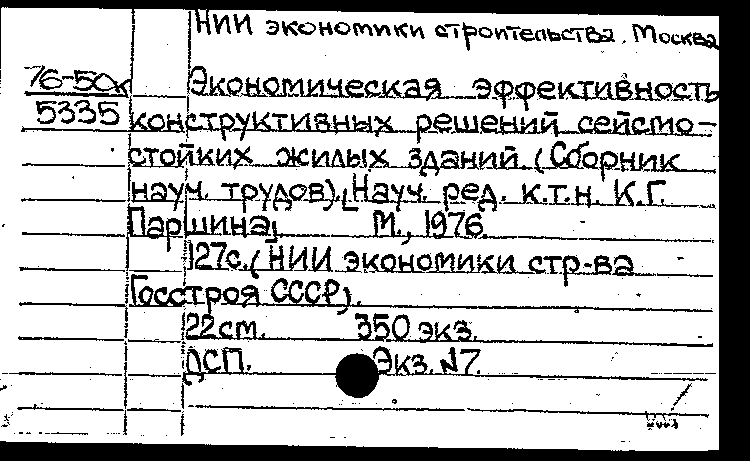 НИИ экономики строительства. Москва
76-50к
5335
Экономическая эффективность
конструктивных решений сейсмо-
стойких жилых зданий. (Сборник
науч. трудов). [Науч. ред. к.т.н. К.Г.
Паршина]. М., 1976.
127с. (НИИ экономики стр-ва
Госстроя СССР).
22см. 350 экз.
ДСП. Экз. №7.